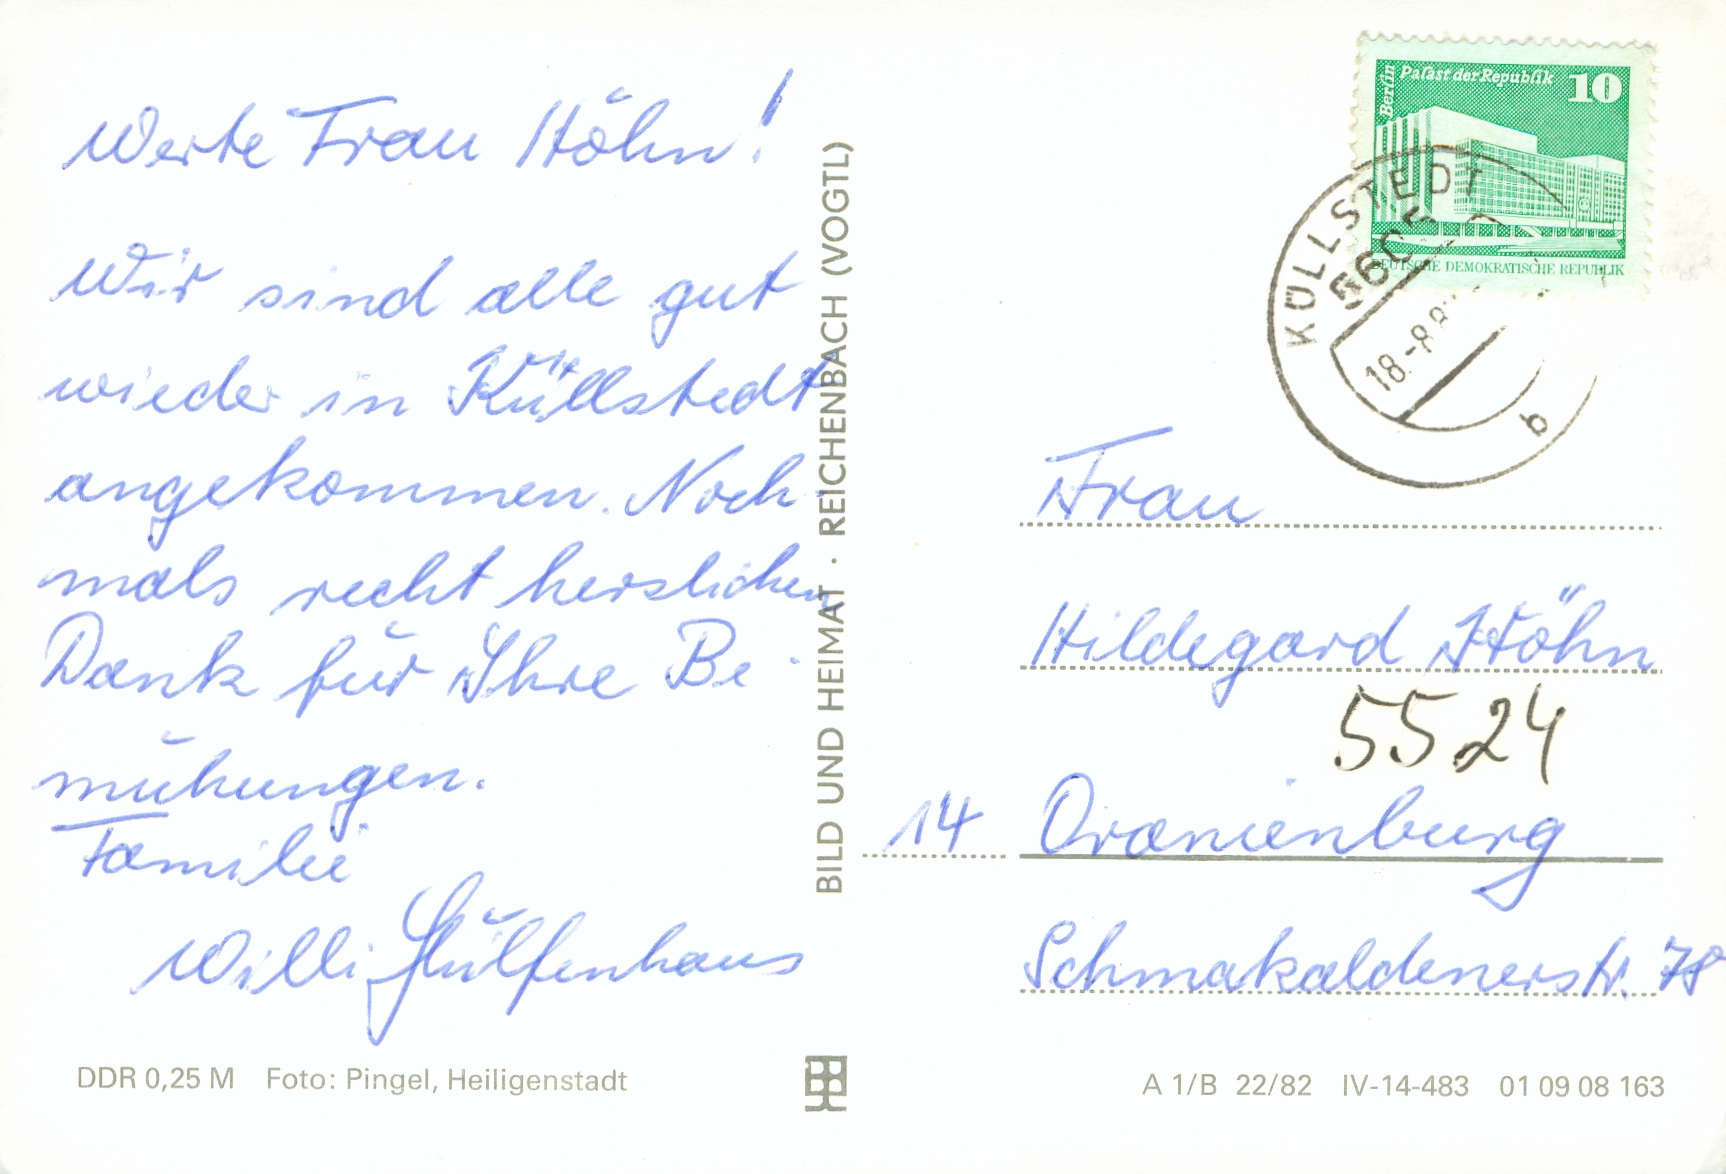 Werte Frau Höhn!
Wir sind alle gut
wieder in Küllstedt
angekommen. Noch
mals recht herzlichen
Dank für Ihre Be
mühungen.
Familie
Willi Hülfenhaus
DDR 0,25 M Foto: Pingel, Heiligenstadt
BILD UND HEIMAT · REICHENBACH (VOGTL)
Berlin
Palast der Republik 10
DEUTSCHE DEMOKRATISCHE REPUBLIK
KÜLLSTEDT
5605
18.-8.8
b
Frau
Hildegard Höhn
5524
14 Oranienburg
Schmakaldenerstr. 78
A 1/B 22/82 IV-14-483 01 09 08 163